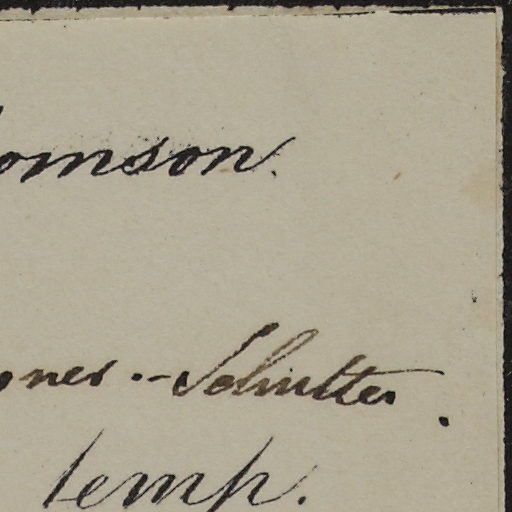 omson.
ner. - Schutter.
temp.